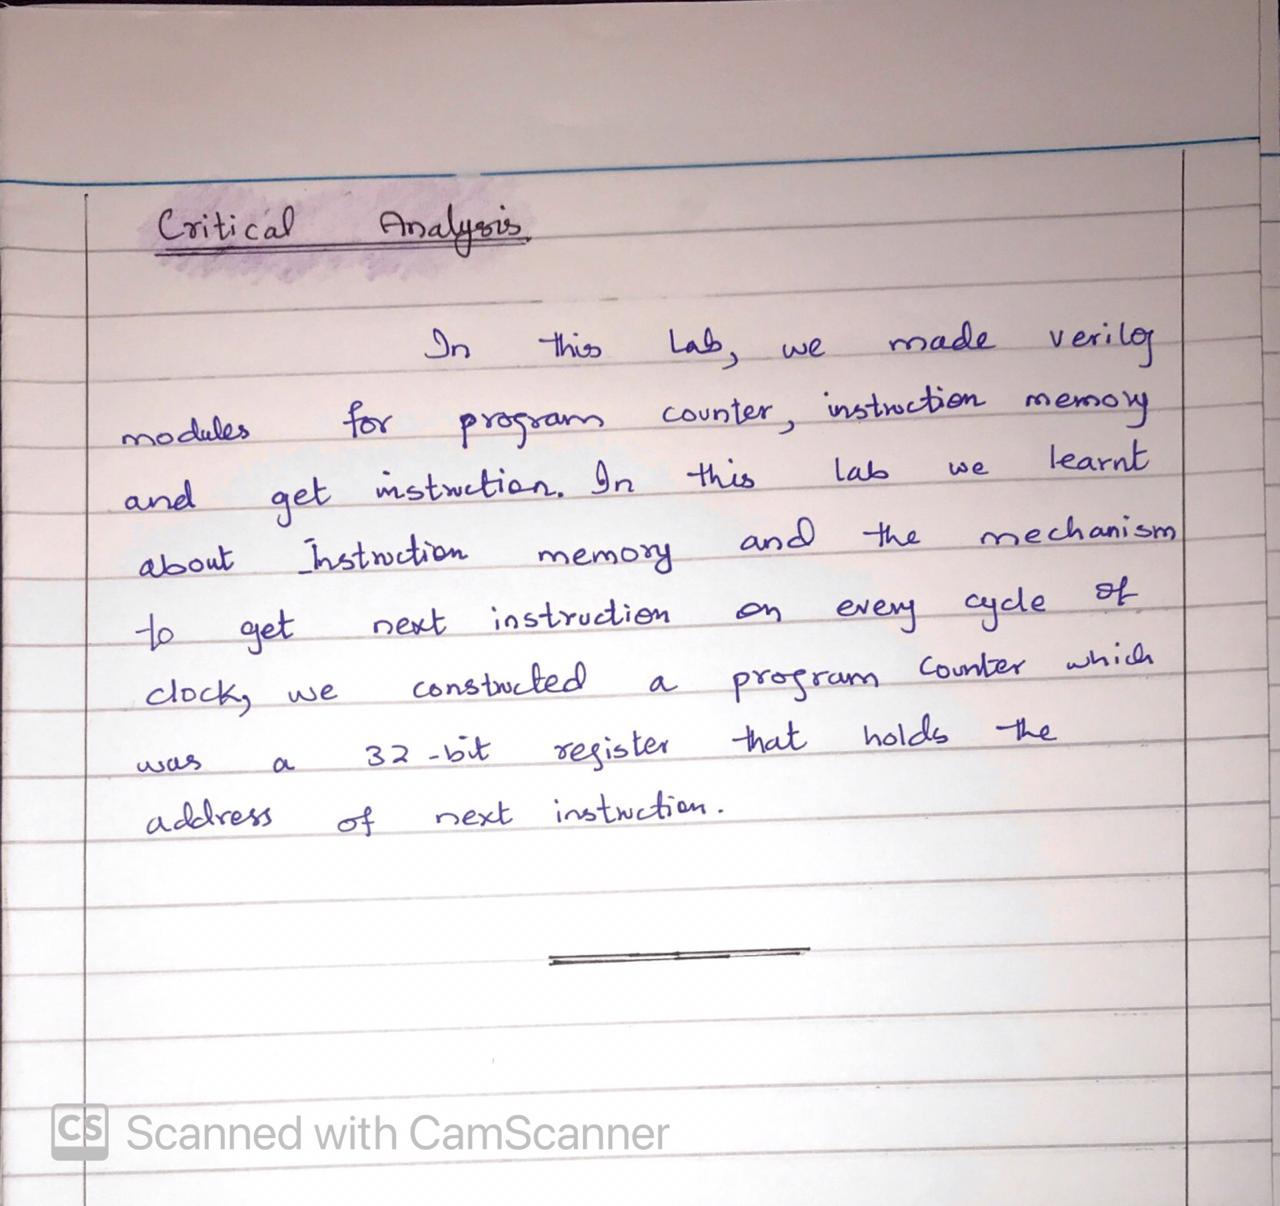 Critical Analysis
In this Lab, we made verilog
modules for program counter, instruction memory
and get instruction. In this lab we learnt
about Instruction memory and the mechanism
to get next instruction on every cycle of
clock, we constructed a program Counter which
was a 32-bit register that holds the
address of next instruction.
CS Scanned with CamScanner